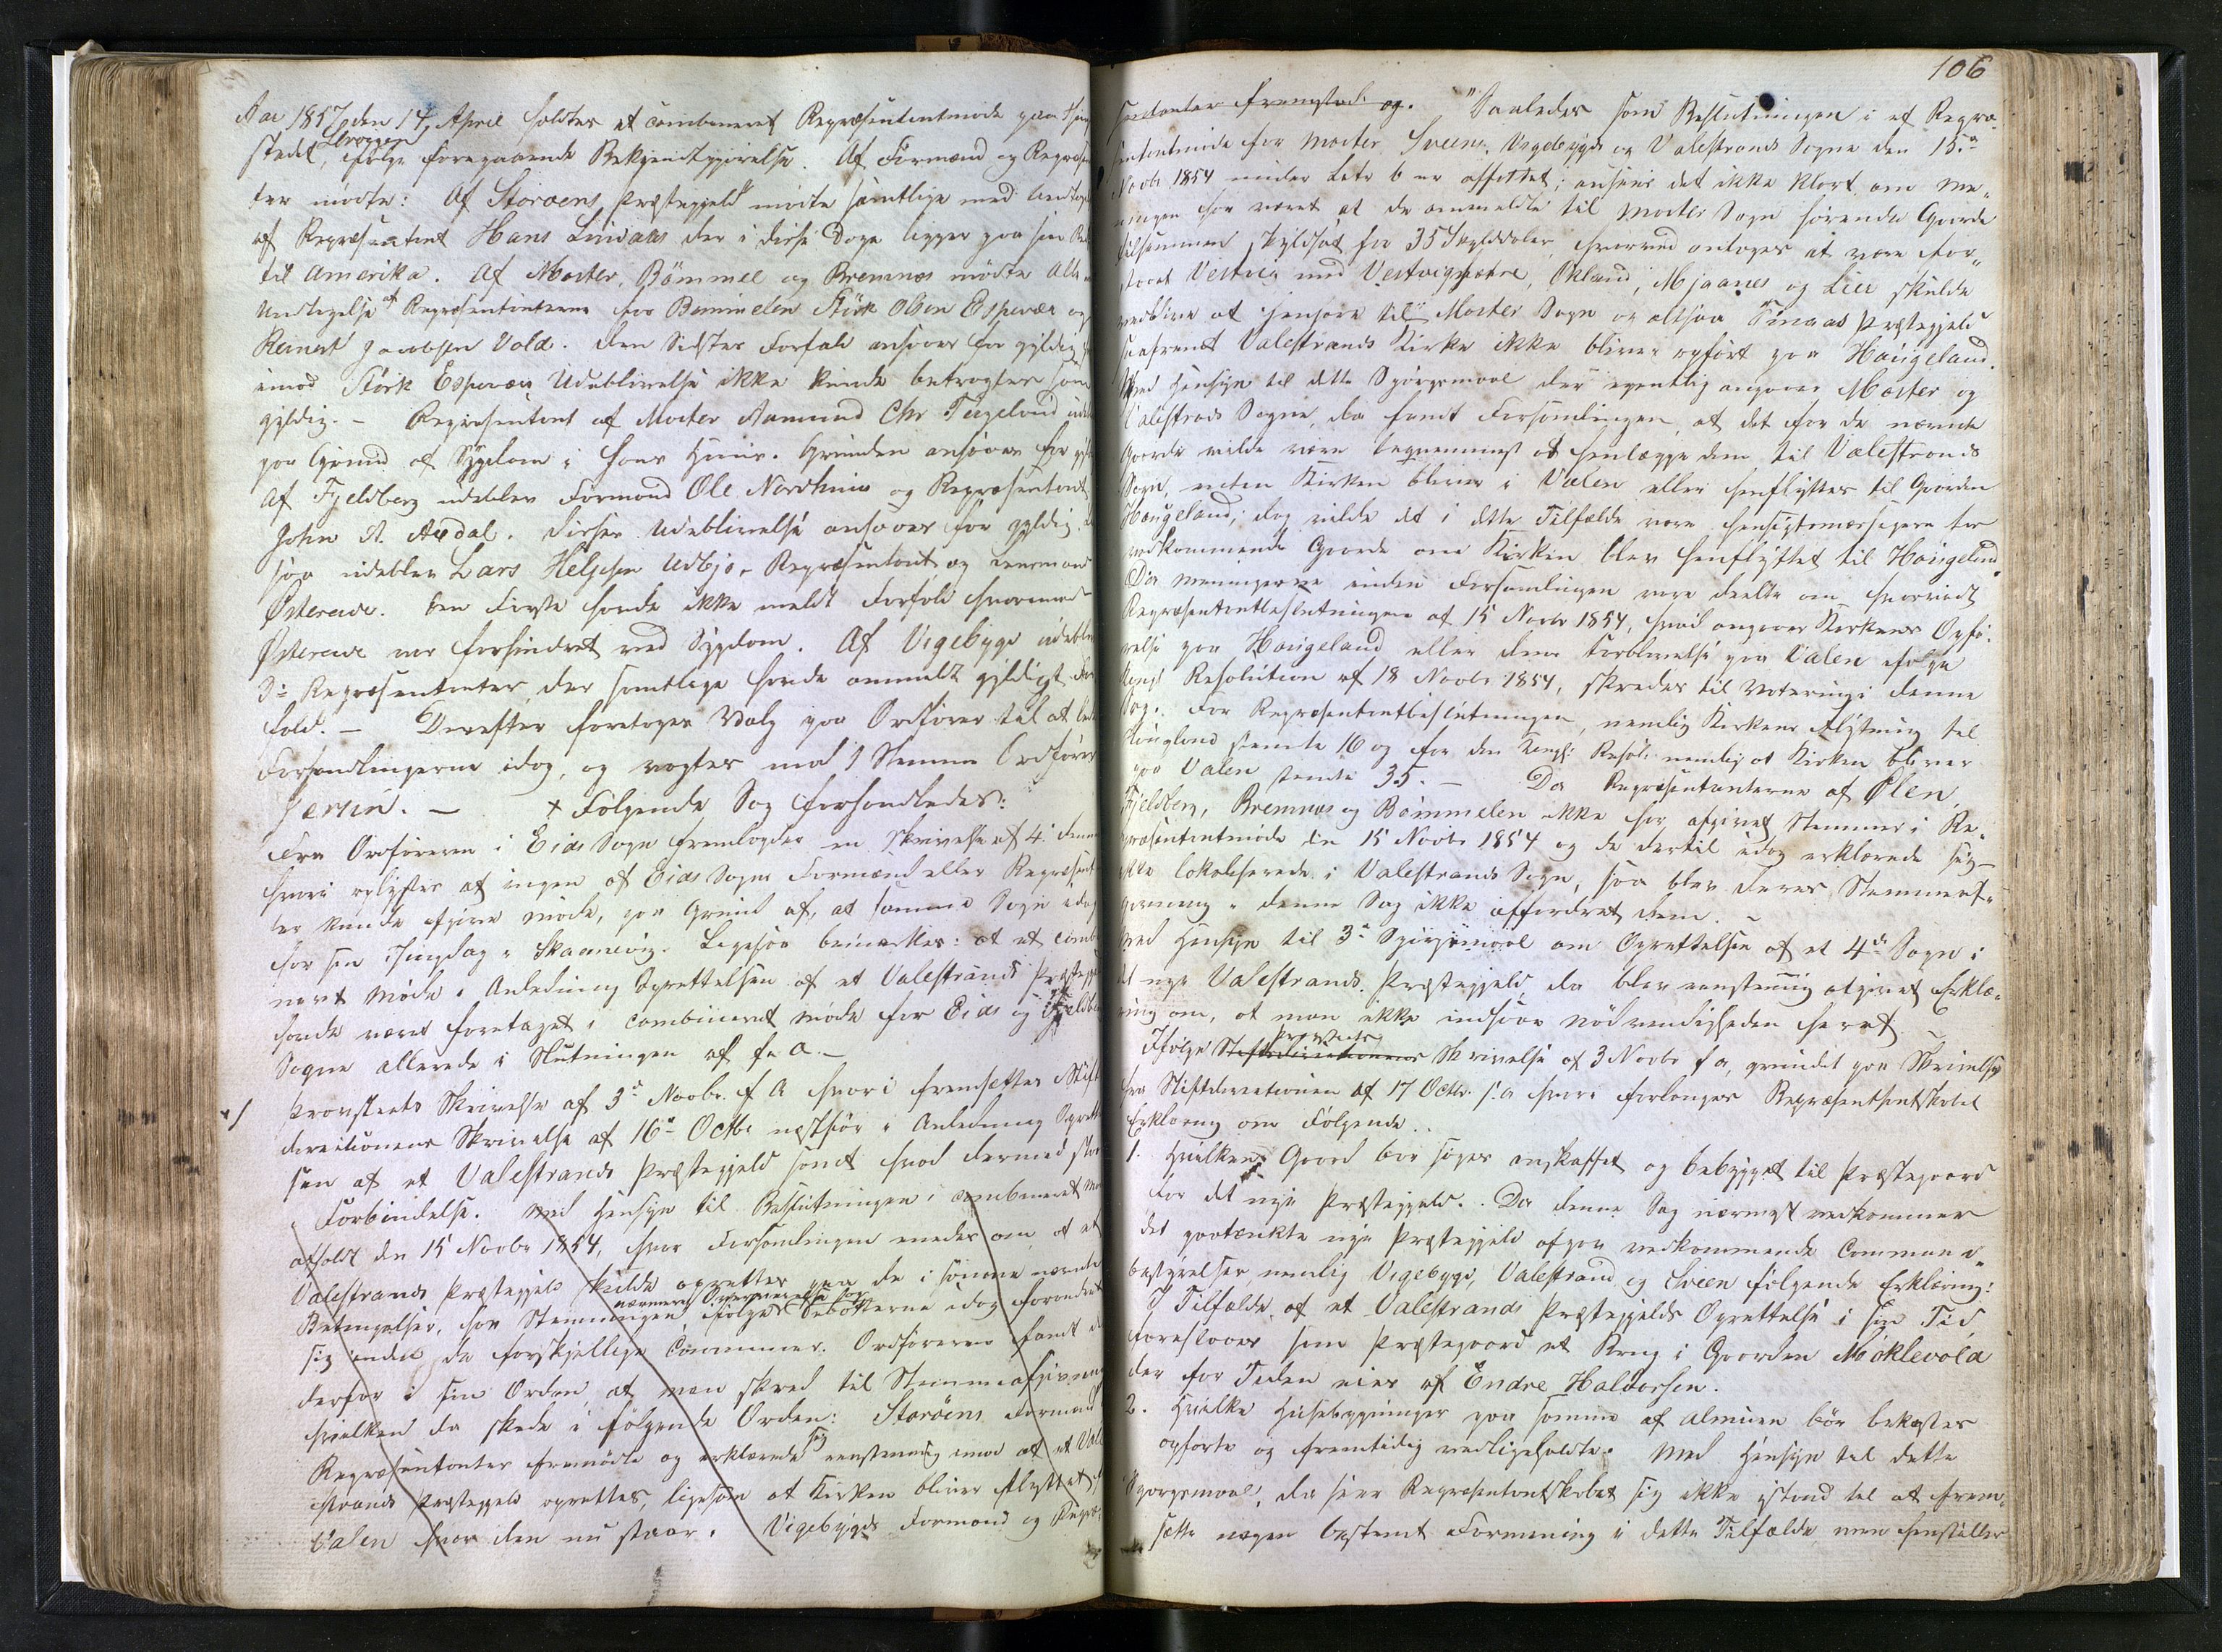 Aar 1857 den 14 April holdtes et combineret Repræsentantmøde paa Thing
stedet Strøggen, ifølge foregaaende Bekjendtgjørelse. Af Formænd og Repræsen
ter mødte: Af Storøens Præstegjeld mødte samtlige med Undtagel
af Repræsentant Hans Lindaas der i disse Dage ligger paa sin Rei
til Amerika. Af Moster, Bømmel og Bremnæs mødte Alle
Undtagelse af Repræsentanterne for Bømmelen Størk Olsen Espevær og
Reinert Jacobsen Vold. Den Sidstes Forfald ansaaes for gyldig
imod Størk Espevær Udeblivelse ikke kunde betragtes som
gyldig. – Repræsentant af Moster Aamund Chr udeb
paa Grund af Sygdom i hans Huus. Grunden ansaaes for gyl
Af Fjeldberg udeblev Formand Ole Nordhuus og Repræsentant
John A. Axdal. Disses Udeblivelse ansaaes for gyldig.
saa udeblev Lars Helgesen Udbjo, Repræsentant og Lensmand
Østereide. Den Første havde ikke meldt Forfald hvorimod
Østereide var forhindret ved Sygdom. Af Vigebygd udeble
3de Repræsentanter, der samtlige havde anmeldt gyldigt For
fald. – Derefter foretoges Valg paa Ordfører til at lede
Forhandlingerne idag, og valgtes med Stemmer Ordfører
Jersin. – + Følgende Sag forhandledes:
Fra Ordføreren i Eids Sogn fremlagdes en Skrivelse af 4 denne
hvori oplystes at ingen af Eids Sogns Formænd eller Repræsent
ter kunde afgive møde, paa Grund af, at samme Sogn idag
har sin Thingdag i Skaanevig. Ligesaa bemærkes: at et combi
neret Møde i Anledning Oprettelsen af et Valestrands Præstegje
havde været foretaget i combineret møde for Eids og Fjeldber
Sogne allerede i Slutningen af f. A. –
Provstiets Skrivelse af 3de Novbr. f A hvori fremsættes Stift
directionens Skrivelse af 16de Octbr næstfør i Anledning Oprett
sen af et Valestrands Præstegjeld samt hvad dermed staa
i Forbindelse. Med Hensyn til Beslutningen i combineret Mø
afholdt den 15 Novbr 1854, hvor Forsamlingen enedes om, at et
Valestrands Præstegjeld skulde oprettes paa de i samme nævnte
Betingelser, har Stemningen, ifølge nærmere Overveielse for idag forandret
sig inden de forskjellige Communer. Ordføreren fandt d
derfor i sin Orden, at man skred til Stemmeafgivning
hvilken da skede i følgende Orden: Storøens Formænd
Repræsentanter fremødte og erklærede sig eenstemmig imod at et Vale
strands Præstegjeld oprettes, ligesom at Kirken bliver flyttet fr
Valen hvor den nu staar. Vigebygds Formænd og Repræ
106
sentanter fremstod og. "Saaledes som Beslutningen i et Repræ
sentantmøde for Moster, Sveens, Vigebygds og Valestrands Sogne den 15de
Novbr 1854 under Litr b er affattet; ansees det ikke klart om Me
ningen har været at de anmeldte til Moster Sogn hørende Gaarde
tilsammen skyldsat for 35 Skylddaler, hvorved antages at være for
staaet Vestvig med Vestvigsætre, Økland, Mjaanes og Lier skulde
vedblive at henhøre til Moster Sogn og altsaa Finaas Præstegjeld
saafremt Valestrands Kirke ikke bliver opført paa Haugeland.
Med Hensyn til dette Spørgsmaal der egentlig angaaer Moster og
Valestrands Sogne, da fandt Forsamlingen, at det for de nævnte
Gaarde vilde være beqvemmest at henlægge dem til Valestrands
Sogn, enten Kirken bliver i Valen eller henflyttes til Gaarden
Haugeland; dog vilde det i dette Tilfælde være hensigtsmæssigere for
vedkommende Gaarde om Kirken blev henflyttet til Haugeland.
Da Meningerne inden Forsamlingen vare deelte om hvorvidt
Repræsentantbeslutningen af 15 Novbr 1854, hvad angaaer Kirkens Opfø
relse paa Haugeland eller dens Forblivelse paa Valen ifølge
Kongl Resolution af 18 Novbr 1854, skredes til Votering i denne
Sag. For Repræsentantbeslutningen, nemlig Kirkens Flytning til
Haugland stemte 16 og for den Kongl: Resol: nemlig at Kirken bliver
paa Valen stemte 35. – Da Repræsentanterne af Ølen,
Fjeldberg, Bremnæs og Bømmelen ikke har afgivet Stemmer i Re
præsentantmøde den 15 Novbr 1854 og de dertil idag erklærede sig
ikke lokaliserede i Valestrands Sogn, saa blev deres Stemmeaf
givning i denne Sag ikke affordret dem. –
Med Hensyn til 3de Spørgsmaal om Oprettelsen af et 4de Sogn i
det nye Valestrands Præstegjeld, da blev eenstemmig afgivet Erklæ
ring om, at man ikke indsaae Nødvendigheden heraf. –
Ifølge Stiftsdirectionens Provstiets Skrivelse af 3 Novbr f a, grundet paa Skrivelse
fra Stiftsdirectionen af 17 Octbr. f. a hvori forlanges Repræsentantskabets
Erklæring om Følgende.
1. Hvilken Gaard bør søges anskaffet og bebygget til Præstegaard
for det nye Præstegjeld. Da denne Sag nærmest vedkommer
det paatænkte nye Præstegjeld afgav vedkommende Commune
bestyrelser nemlig Vigebygd, Valestrand og Sveen følgende Erklæring:
I Tilfælde af et Valestrands Præstegjelds Oprettelse i sin Tid
foreslaaes som Præstegaard et Brug i Gaarden Møklevold
der for Tiden eies af Endre Haldorsen.
2. Hvilke Huusebygninger paa samme af Almuen bør bekostes
opførte og fremtidig vedligeholdte. Med Hensyn til dette
Spørgsmaal, da seer Repræsentantskabet sig ikke istand til at frem
sætte nogen bestemt Formening i dette Tilfælde men henstiller